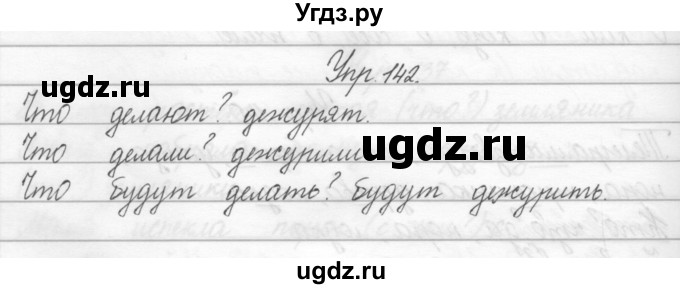 Угдз.ру
Упр. 142.
ugdz.ru ugdz.ru
Что делают? дежурят.
Что делали? дежурили
ugdz.ru
Что будут делать? будут дежурить.
ugdz.ru ugdz.ru
ugdz.ru